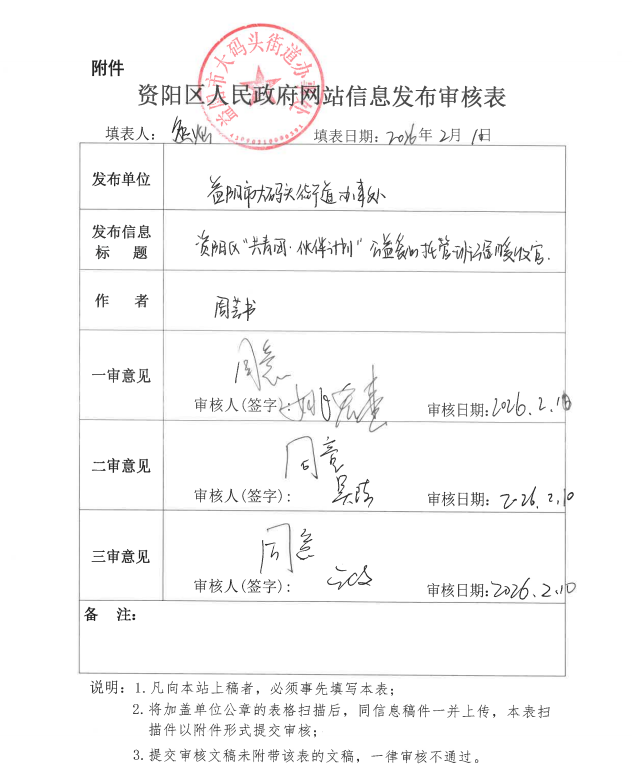 附件
益阳市大码头街道办事处
资阳区人民政府网站信息发布审核表
填表人: 填表日期: 2026年2月10日
发布单位 益阳市大码头街道办事处
发布信息标题 资阳区"共青团·伙伴计划"公益托管班温暖收官.
作者 周芸书
一审意见 同意
审核人(签字): 审核日期: 2026.2.10
二审意见 同意
审核人(签字): 审核日期: 2026.2.10
三审意见 同意
审核人(签字): 审核日期: 2026.2.10
备 注:
说明: 1.凡向本站上稿者，必须事先填写本表;
2.将加盖单位公章的表格扫描后，同信息稿件一并上传，本表扫
描件以附件形式提交审核;
3.提交审核文稿未附带该表的文稿，一律审核不通过。